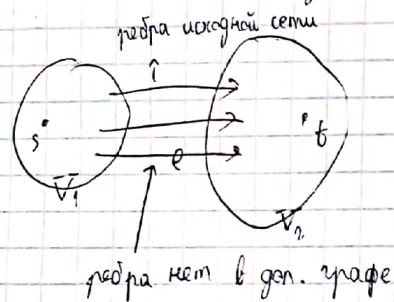 ребра исходной сети
s
t
e
V₁
V₂
ребра нет в доп. графе